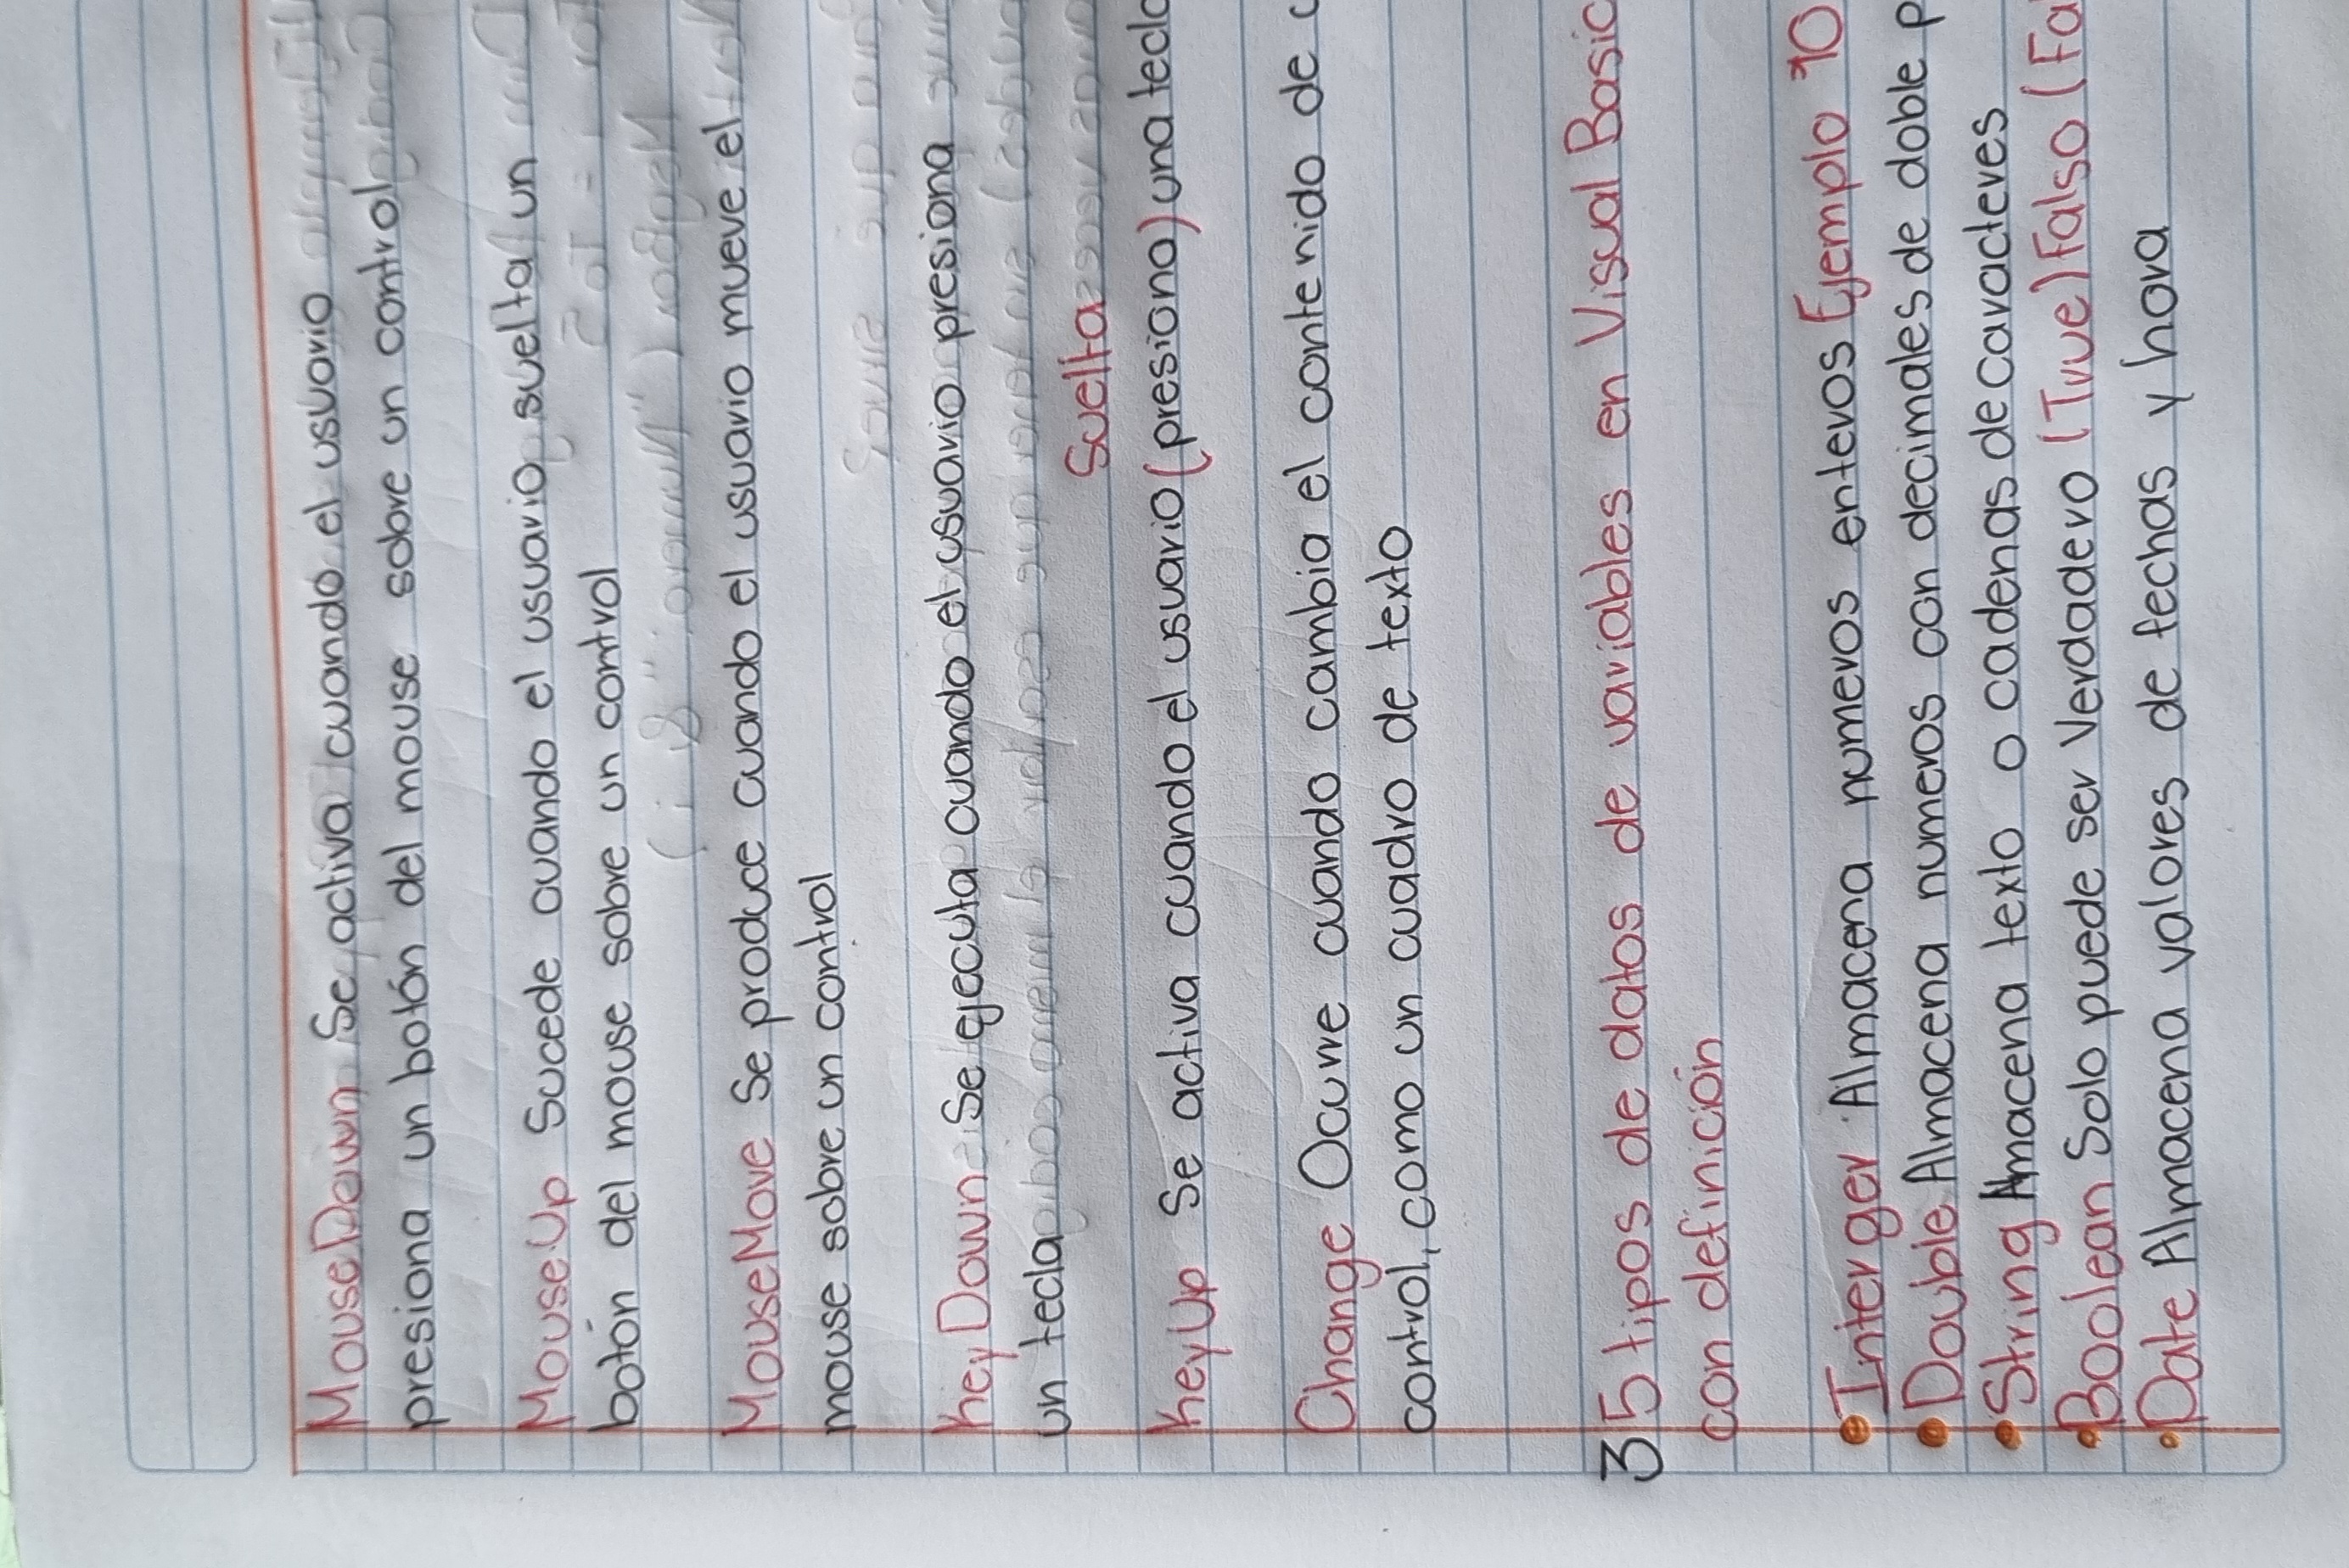 MouseDown Se activa cuando el usuario
presiona un botón del mouse sobre un control
MouseUp Sucede cuando el usuario suelta un
botón del mouse sobre un control
MouseMove Se produce cuando el usuario mueve el
mouse sobre un control
KeyDown Se ejecuta cuando el usuario presiona
un tecla
Suelta
KeyUp Se activa cuando el usuario (presiono) una tecla
Change Ocurre cuando cambia el contenido de
control, como un cuadro de texto
3 5 tipos de datos de variables en Visual Basic
con definición
• Interger Almacena numeros enteros Ejemplo 10
• Double Almacena numeros con decimales de doble p
• String Amacena texto o cadenas de caracteres
• Boolean Solo puede ser Verdadero (True) Falso (Fa
• Date Almacena valores de fechas y hora